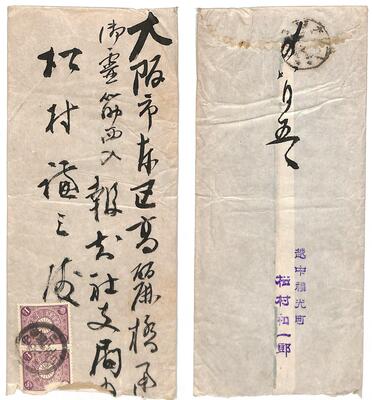 大阪市東区高麗橋角
御霊筋西入
報知社支局内
松村謙三殿
十月五日
越中福光町
松村和一郎